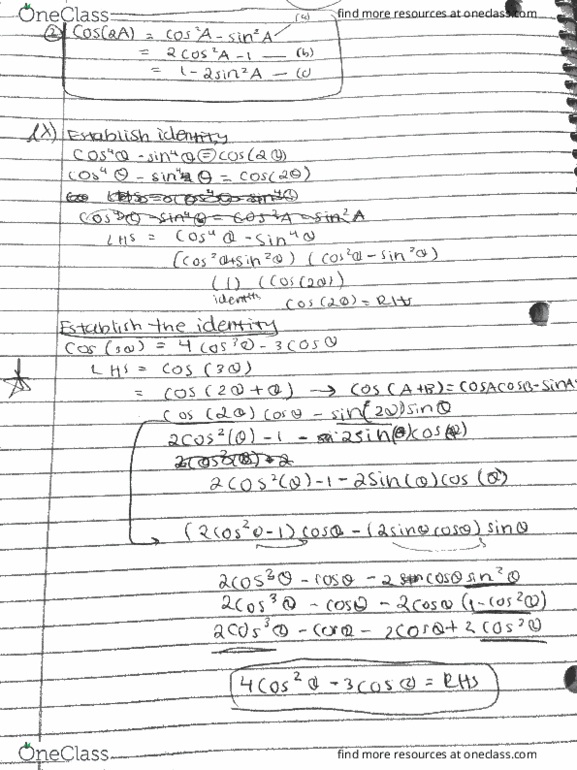 OneClass
find more resources at oneclass.com
(a)
② Cos(2A) = cos²A - sin²A
= 2cos²A - 1 — (b)
= 1 - 2sin²A — (c)
Establish identity
cos⁴θ - sin⁴θ = cos(2θ)
cos⁴θ - sin⁴θ = cos(2θ)
cos⁴θ - sin⁴θ = cos²A - sin²A
LHS = cos⁴θ - sin⁴θ
(cos²θ + sin²θ) (cos²θ - sin²θ)
(1) (cos(2θ))
cos(2θ) = RHS
Establish the identity
cos(3θ) = 4cos³θ - 3cosθ
LHS = cos(3θ)
= cos(2θ + θ) → cos(A+B) = cosAcosB - sinA
cos(2θ)cosθ - sin(2θ)sinθ
2cos²(θ) - 1 - 2sin(θ)cos(θ)
2cos²(θ) - 1 - 2sin(θ)cos(θ)
(2cos²θ - 1)cosθ - (2sinθcosθ)sinθ
2cos³θ - cosθ - 2cosθsin²θ
2cos³θ - cosθ - 2cosθ(1 - cos²θ)
2cos³θ - cosθ - 2cosθ + 2cos³θ
4cos²θ - 3cosθ = RHS
OneClass
find more resources at oneclass.com